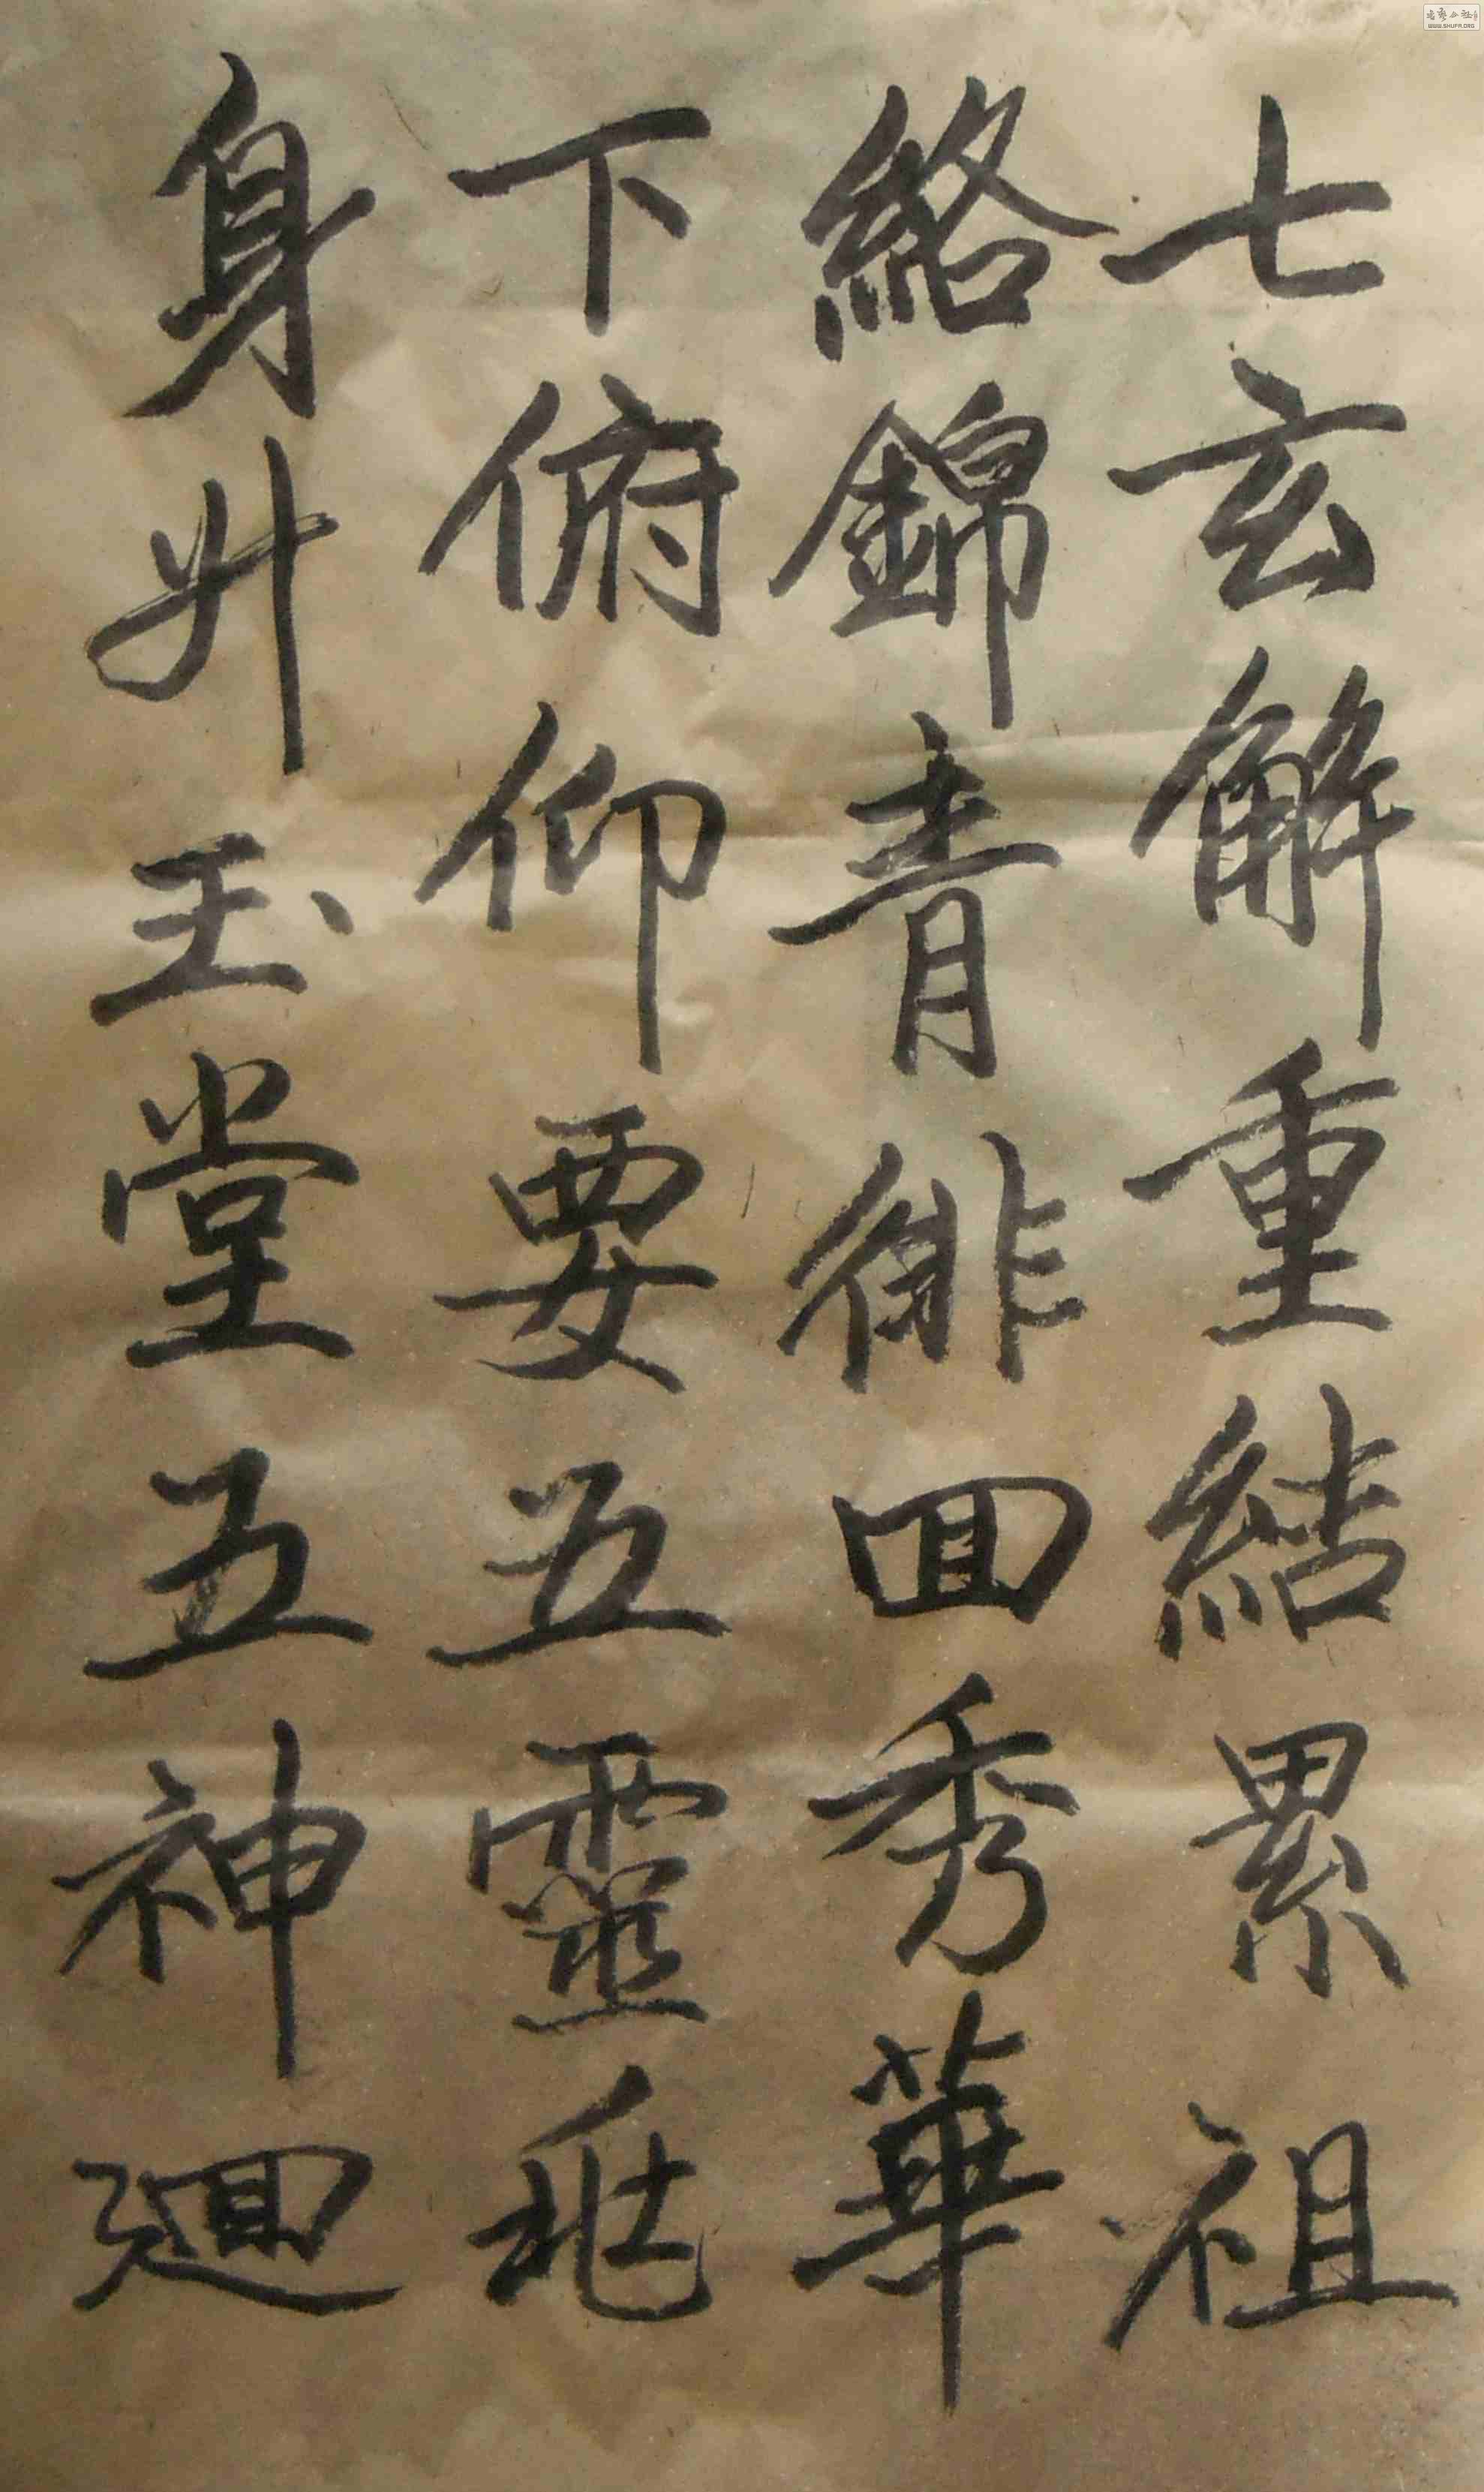 七玄解重結累祖
絡錦青徘囬秀華
下俯仰要五靈
身升玉堂五神迴
WWW.SHUFA.ORG